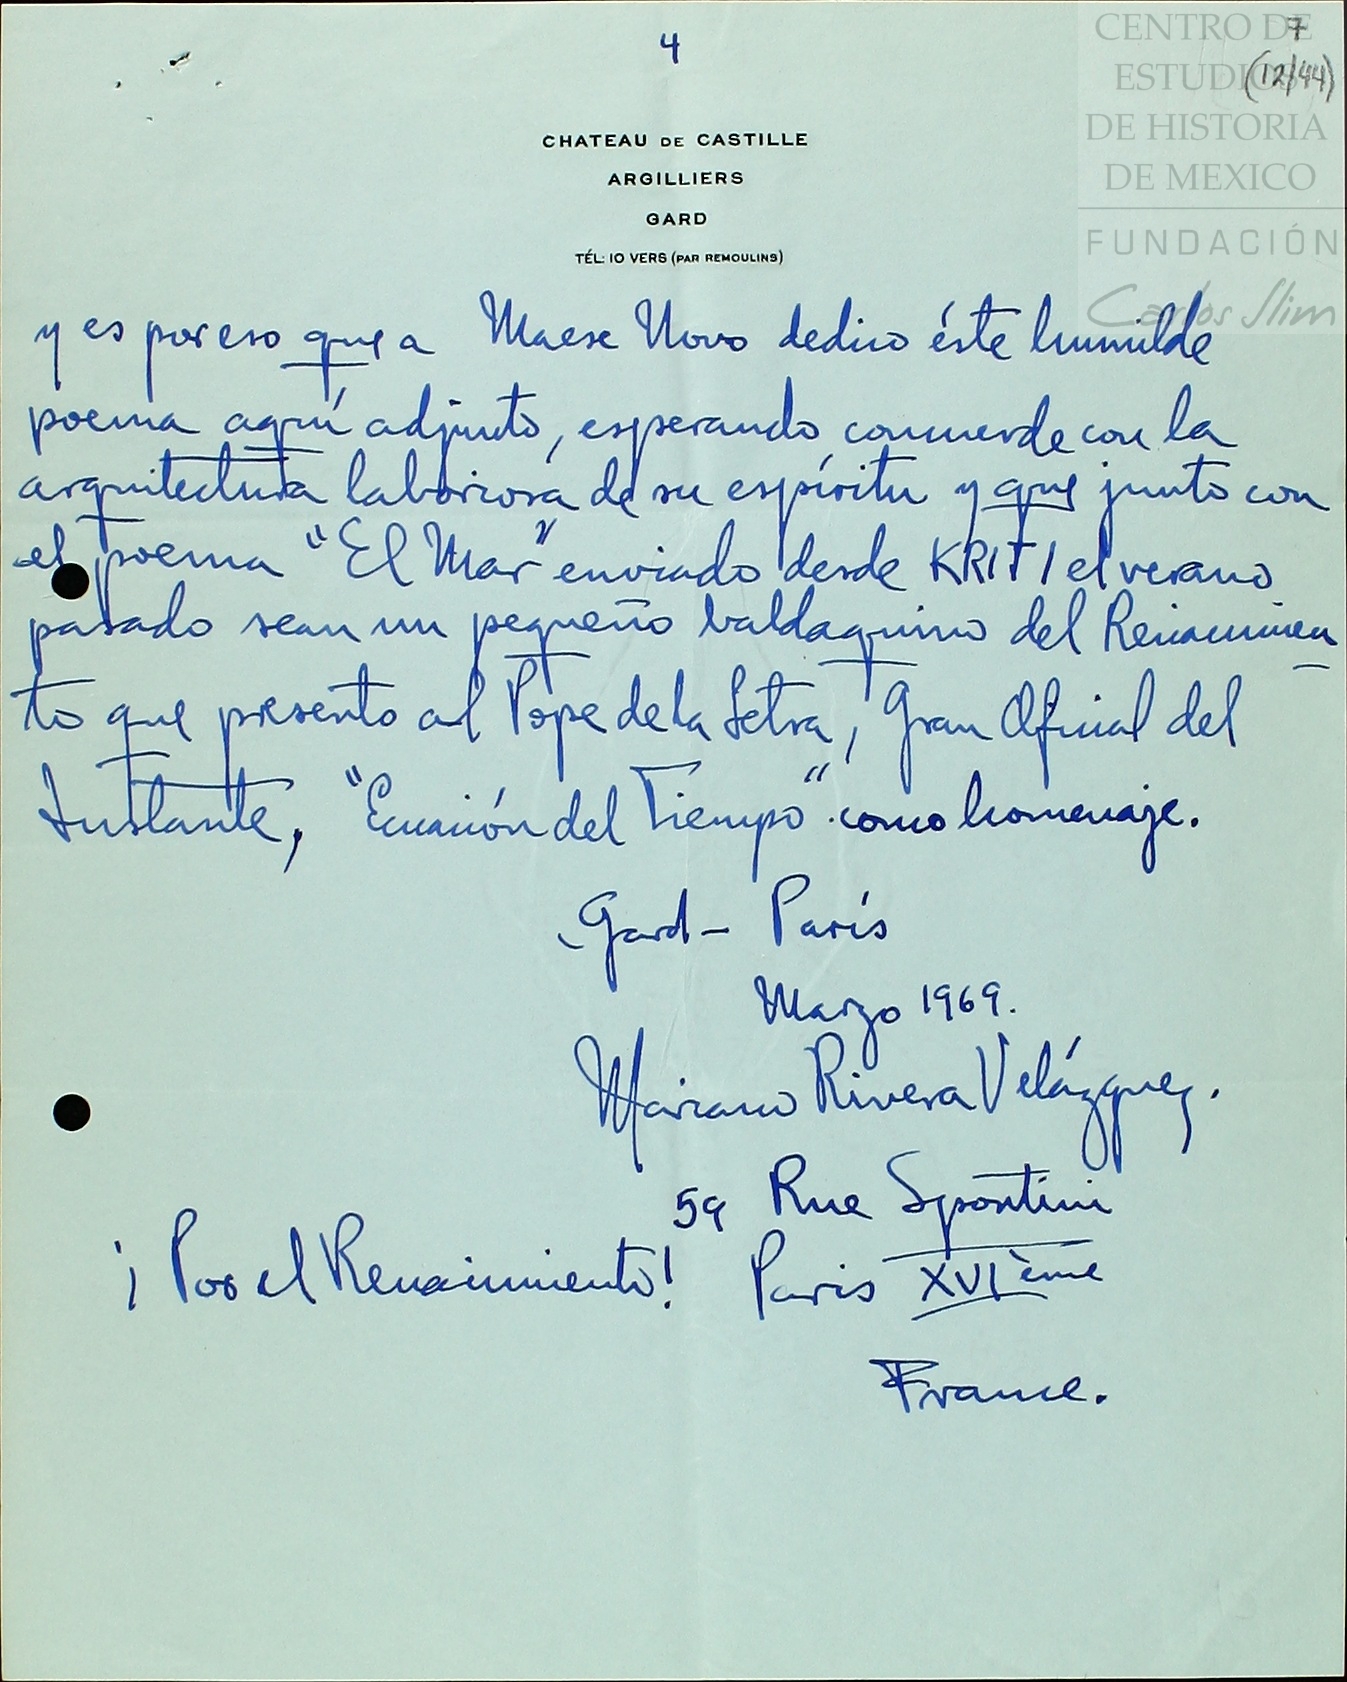 4
7
(12/44)
CENTRO DE
ESTUDIOS
DE HISTORIA
DE MEXICO
FUNDACIÓN
Carlos Slim
CHATEAU DE CASTILLE
ARGILLIERS
GARD
TÉL: 10 VERS (PAR REMOULINS)
y es por eso que a Maese Novo dedico éste humilde
poema aquí adjunto, esperando concuerde con la
arquitectura laboriosa de su espíritu y que junto con
el poema "El Mar" enviado desde KRITI el verano
pasado sean un pequeño baldaquino del Renacimien
to que presento al Pope de la Letra, Gran Oficial del
Instante, "Ecuación del Tiempo" como homenaje.
Gard – París
Marzo 1969.
Mariano Rivera Velázquez.
59 Rue Spontini
¡Por el Renacimiento! Paris XVIème
France.